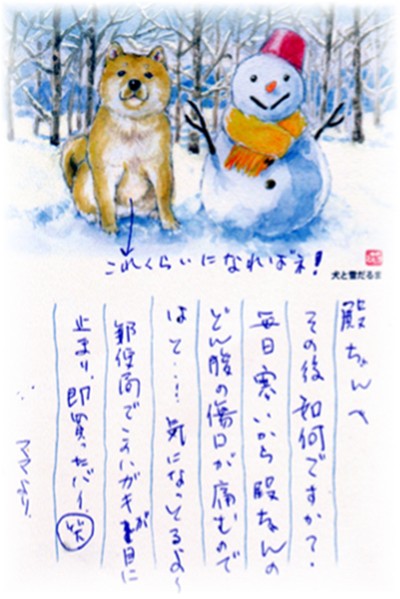 これくらいになればネ!
犬と雪だるま
殿ちゃんへ
その後如何ですか?
毎日寒いから殿ちゃんの
どん腹の傷口が痛むので
はて…! 気になってるよ〜
郵便局でこのハガキが目に
止まり、即買ったバイ
笑
ママより.